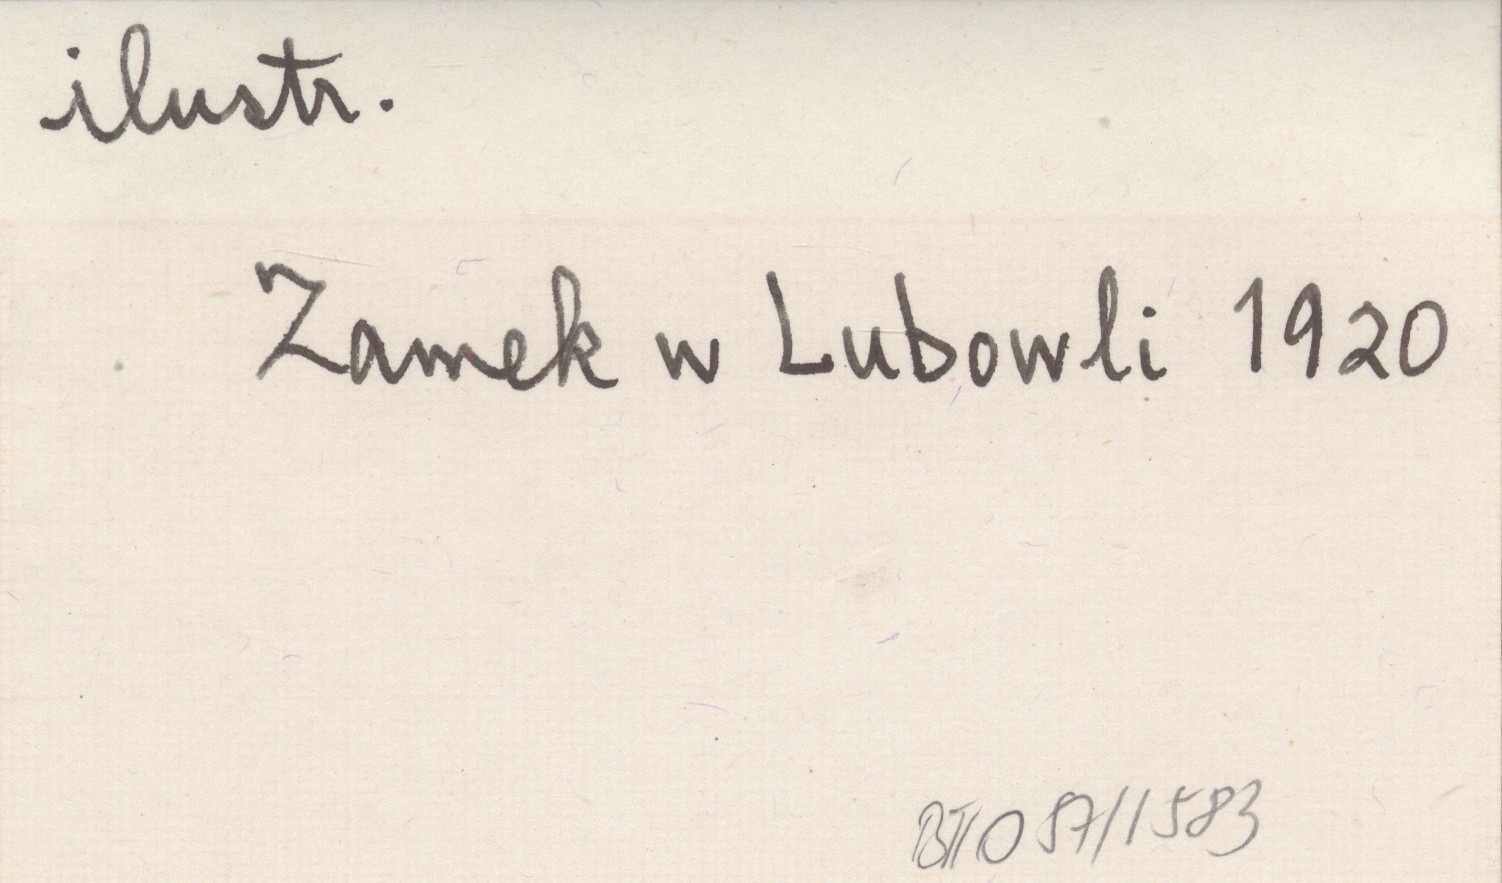 ilustr.
Zamek w Lubowli 1920
BTTO 87/1583